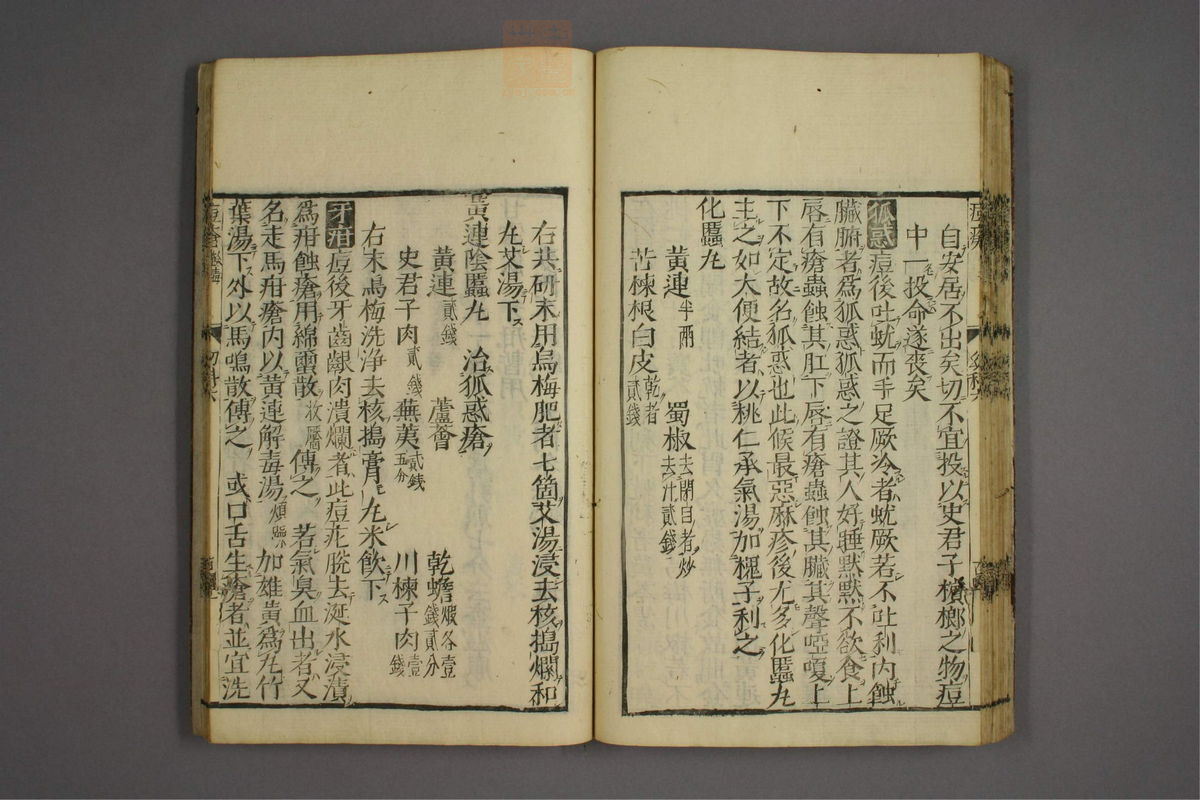 自安居不出矣切不宜投以史君子檳榔之物痘
中一投命遂喪矣
狐惑痘後吐蚘而手足厥冷者蚘厥若不吐利内蝕
臟腑者爲狐惑狐惑之證其人好睡默默不欲食上
唇有瘡蟲蝕其肛下唇有瘡蟲蝕其臟其聲啞嗄上
下不定故名狐惑也此候最惡麻疹後尤多化䘌丸
主之如大便結者以桃仁承氣湯加槐子利之
化䘌丸
黄連半兩 蜀椒去閉目者炒去汁貳錢
苦楝根白皮乾者貳錢
右共研末用烏梅肥者七箇艾湯浸去核搗爛和
丸艾湯下
黄連除䘌丸 治狐惑瘡
黄連貳錢 蘆薈 乾蟾煅各壹錢貳分
史君子肉貳錢 蕪荑貳錢五分 川楝子肉壹錢
右末烏梅洗浄去核搗膏丸米飲下
牙疳痘後牙齒齦肉潰爛者此痘疕脫去涎水浸漬
爲疳蝕瘡用綿蠒散 傅之 若氣臭血出者又
名走馬疳瘡内以黄連解毒湯煩躁 加雄黄爲丸竹
葉湯下外以馬鳴散傅之 或口舌生瘡者並宜洗